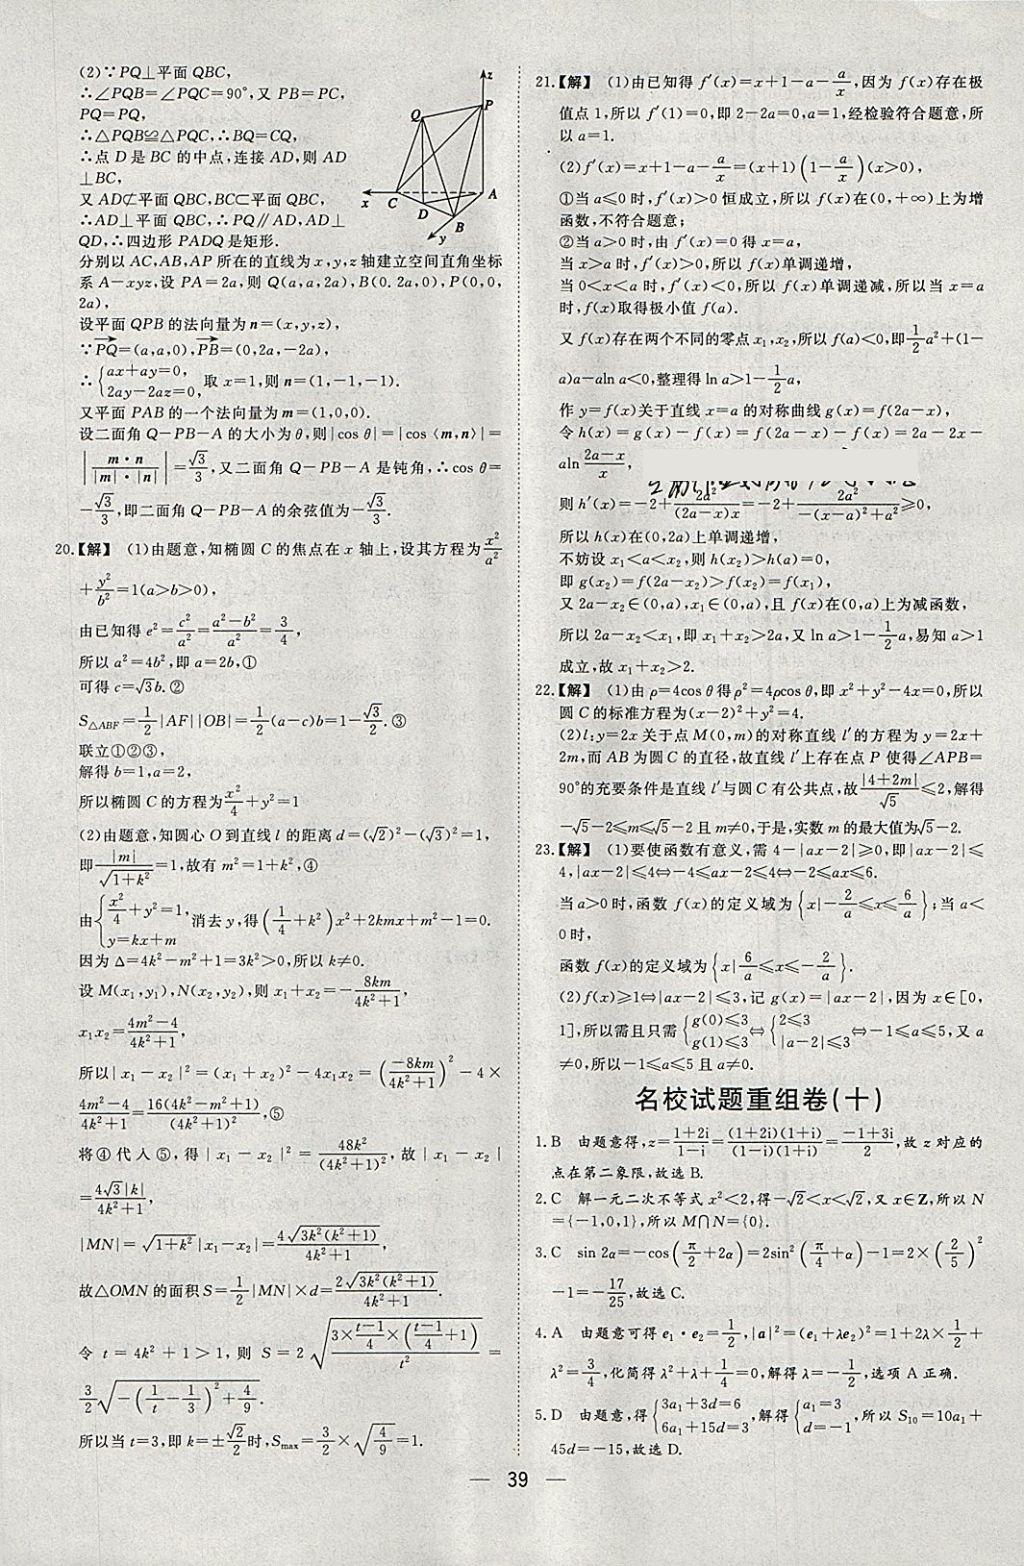 (2)∵PQ⊥平面QBC,
∴∠PQB=∠PQC=90°,又 PB=PC,
PQ=PQ,
∴△PQB≌△PQC,∴BQ=CQ,
∴点 D 是 BC 的中点,连接 AD,则 AD
⊥BC,
又 AD⊄平面 QBC,BC⊂平面 QBC,
∴AD⊥平面 QBC,∴PQ∥AD,AD⊥
QD,∴四边形 PADQ 是矩形.
z
P
Q
x
C
D
A
B
y
分别以 AC,AB,AP 所在的直线为 x,y,z 轴建立空间直角坐标
系 A-xyz,设 PA=2a,则 Q(a,a,2a),B(0.2a,0),P(0,0,
2a),
设平面 QPB 的法向量为 n=(x,y,z),
∵PQ→=(a,a,0),PB→=(0,2a,-2a),
∴{ax+ay=0, 2ay-2az=0, 取 x=1,则 n=(1,-1,-1).
又平面 PAB 的一个法向量为 m=(1,0,0).
设二面角 Q-PB-A 的大小为 θ,则|cos θ|=|cos〈m,n〉|=
|m·n/(|m|·|n|)|=√3/3,又二面角 Q-PB-A 是钝角,∴cos θ=
-√3/3,即二面角 Q-PB-A 的余弦值为-√3/3.
20.【解】 (1)由题意,知椭圆 C 的焦点在 x 轴上,设其方程为x²/a²
+y²/b²=1(a>b>0),
由已知得 e²=c²/a²=(a²-b²)/a²=3/4,
所以 a²=4b²,即 a=2b,①
可得 c=√3b.②
S△ABF=1/2|AF||OB|=1/2(a-c)b=1-√3/2.③
联立①②③,
解得 b=1,a=2,
所以椭圆 C 的方程为x²/4+y²=1
(2)由题意,知圆心 O 到直线 l 的距离 d=(√2)²-(√3)²=1,
即|m|/√(1+k²)=1,故有 m²=1+k²,④
由{x²/4+y²=1, y=kx+m 消去 y,得(1/4+k²)x²+2kmx+m²-1=0.
因为 Δ=4k²-m²+1=3k²>0,所以 k≠0.
设 M(x₁,y₁),N(x₂,y₂),则 x₁+x₂=-8km/(4k²+1),
x₁x₂=(4m²-4)/(4k²+1),
所以|x₁-x₂|²=(x₁+x₂)²-4x₁x₂=(-8km/(4k²+1))²-4×
(4m²-4)/(4k²+1)=16(4k²-m²+1)/(4k²+1)²,⑤
将④代人⑤,得|x₁-x₂|²=48k²/(4k²+1)²,故|x₁-x₂|
=4√3|k|/(4k²+1),
|MN|=√(1+k²)|x₁-x₂|=4√(3k²(k²+1))/(4k²+1),
故△OMN 的面积 S=1/2|MN|×d=2√(3k²(k²+1))/(4k²+1).
令 t=4k²+1>1,则 S=2√(3×(t-1)/4×((t-1)/4+1)/t²)=
3/2√(-(1/t-1/3)²+4/9).
所以当 t=3,即 k=±√2/2时,Smax=3/2×√(4/9)=1.
21.【解】 (1)由已知得 f′(x)=x+1-a-a/x,因为 f(x)存在极
值点 1,所以 f′(1)=0,即 2-2a=0,a=1,经检验符合题意,所
以 a=1.
(2)f′(x)=x+1-a-a/x=(x+1)(1-a/x)(x>0),
①当 a≤0 时,f′(x)>0 恒成立,所以 f(x)在(0,+∞)上为增
函数,不符合题意;
②当 a>0 时,由 f′(x)=0 得 x=a,
当 x>a 时,f′(x)>0,所以 f(x)单调递增,
当 0<x<a 时,f′(x)<0,所以 f(x)单调递减,所以当 x=a
时,f(x)取得极小值 f(a).
又 f(x)存在两个不同的零点 x₁,x₂,所以 f(a)<0,即1/2a²+(1-
a)a-aln a<0,整理得 ln a>1-1/2a,
作 y=f(x)关于直线 x=a 的对称曲线 g(x)=f(2a-x),
令 h(x)=g(x)-f(x)=f(2a-x)-f(x)=2a-2x-
aln(2a-x)/x,
则 h′(x)=-2+2a²/((2a-x)x)=-2+2a²/(-(x-a)²+a²)≥0,
所以 h(x)在(0,2a)上单调递增,
不妨设 x₁<a<x₂,则 h(x₂)>h(a)=0,
即 g(x₂)=f(2a-x₂)>f(x₂)=f(x₁),
又 2a-x₂∈(0,a),x₁∈(0,a),且 f(x)在(0,a)上为减函数,
所以 2a-x₂<x₁,即 x₁+x₂>2a,又 ln a>1-1/2a,易知 a>1
成立,故 x₁+x₂>2.
22.【解】 (1)由 ρ=4cos θ 得 ρ²=4ρcos θ,即 x²+y²-4x=0,所以
圆 C 的标准方程为(x-2)²+y²=4.
(2)l:y=2x 关于点 M(0,m)的对称直线 l′的方程为 y=2x+
2m,而 AB 为圆 C 的直径,故直线 l′上存在点 P 使得∠APB=
90°的充要条件是直线 l′与圆 C 有公共点,故|4+2m|/√5≤2,解得
-√5-2≤m≤√5-2 且 m≠0,于是,实数 m 的最大值为√5-2.
23.【解】 (1)要使函数有意义,需 4-|ax-2|≥0,即|ax-2|≤
4,|ax-2|≤4⇔-4≤ax-2≤4⇔-2≤ax≤6.
当 a>0 时,函数 f(x)的定义域为{x|-2/a≤x≤6/a};当 a<
0 时,
函数 f(x)的定义域为{x|6/a≤x≤-2/a}.
(2)f(x)≥1⇔|ax-2|≤3,记 g(x)=|ax-2|,因为 x∈[0,
1],所以需且只需{g(0)≤3 g(1)≤3⇔{2≤3 |a-2|≤3⇔-1≤a≤5,又 a
≠0,所以-1≤a≤5 且 a≠0.
名校试题重组卷(十)
1.B 由题意得,z=(1+2i)/(1-i)=(1+2i)(1+i)/((1-i)(1+i))=(-1+3i)/2,故 z 对应的
点在第二象限,故选 B.
2.C 解一元二次不等式 x²<2,得-√2<x<√2,又 x∈Z,所以 N
={-1,0,1},所以 M∩N={0}.
3.C sin 2α=-cos(π/2+2α)=2sin²(π/4+α)-1=2×(2/5)²
-1=-17/25,故选 C.
4.A 由题意可得 e₁·e₂=1/2,|a|²=(e₁+λe₂)²=1+2λ×1/2+
λ²=3/4,化简得 λ²+λ+1/4=0,解得 λ=-1/2,选项 A 正确.
5.D 由题意,得{3a₁+3d=6 6a₁+15d=3,解得{a₁=3 d=-1,所以 S₁₀=10a₁+
45d=-15,故选 D.
39